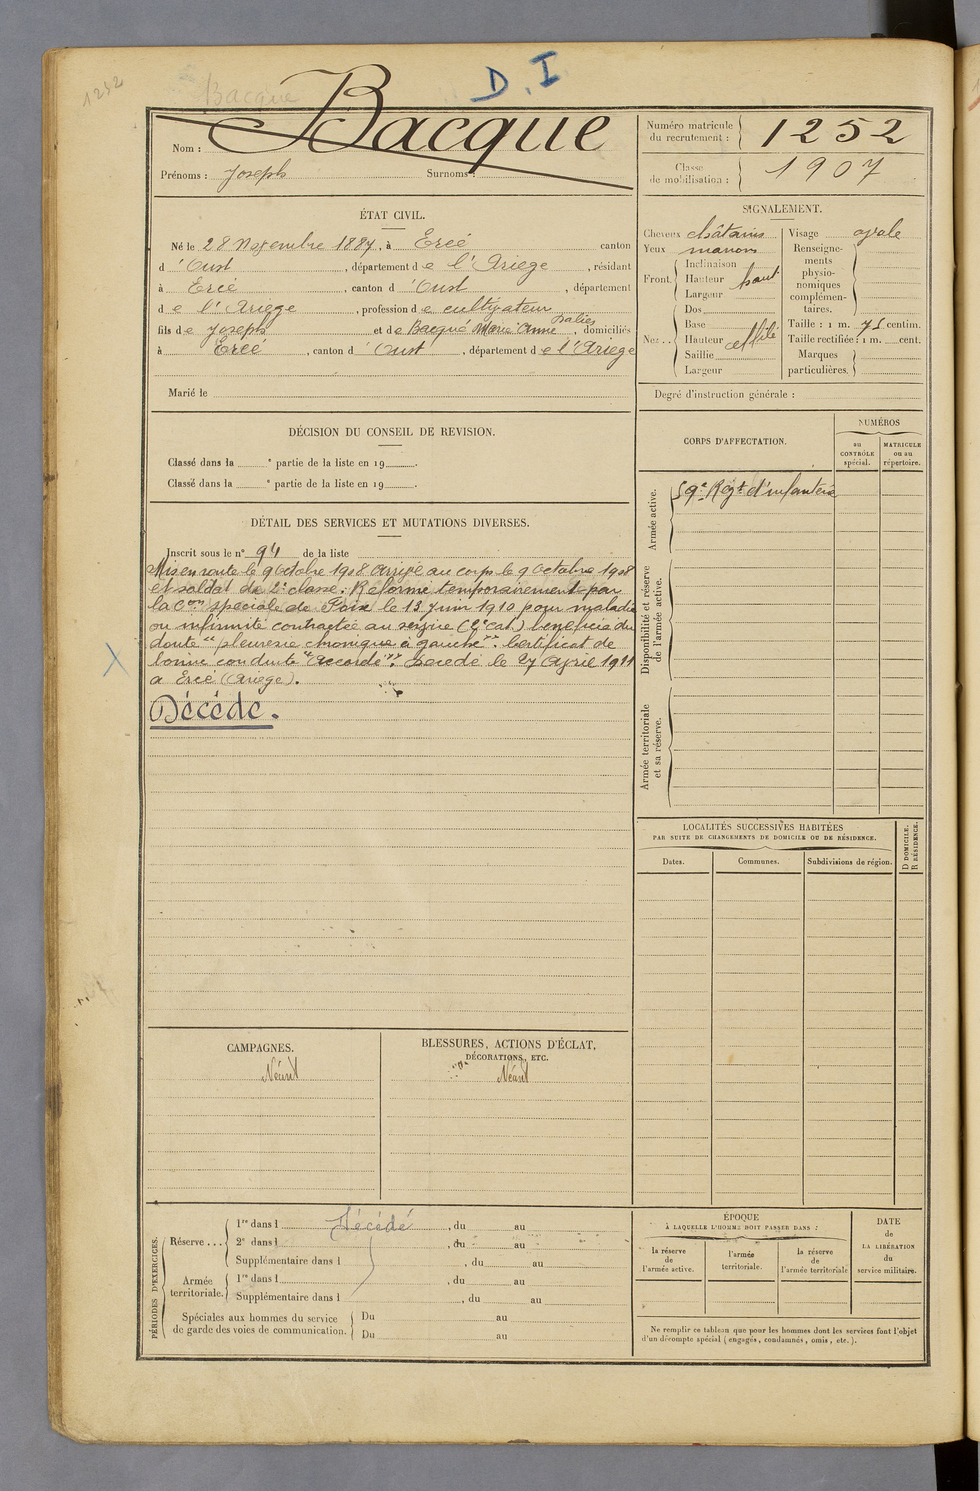 1252
Bacque
D. I
Nom : Bacque
Prénoms : Joseph Surnoms :
Numéro matricule du recrutement : 1252
Classe de mobilisation : 1907
ÉTAT CIVIL.
Né le 28 Novembre 1887, à Ercé canton
d 'Oust, département de l'Ariège, résidant
à Ercé, canton d 'Oust, département
de l'Ariège, profession de cultivateur
fils de Joseph et de Bacqué Marie Anne, domiciliés
à Ercé, canton d 'Oust, département de l'Ariège
Marié le
SIGNALEMENT.
Cheveux châtains
Yeux marrons
Front. Inclinaison
Hauteur haut
Largeur
Nez .. Dos
Base
Hauteur effilé
Saillie
Largeur
Visage ovale
Renseigne-
ments
physio-
nomiques
complémen-
taires.
Taille : 1 m. 71 centim.
Taille rectifiée : 1 m. cent.
Marques
particulières.
Degré d'instruction générale :
DÉCISION DU CONSEIL DE REVISION.
Classé dans la e partie de la liste en 19 .
Classé dans la e partie de la liste en 19 .
DÉTAIL DES SERVICES ET MUTATIONS DIVERSES.
Inscrit sous le n° 94 de la liste
Mis en route le 9 Octobre 1908 Arrivé au corps le 9 Octobre 1908
et soldat de 2e classe. Réformé temporairement par
la Con spéciale de Foix le 13 Juin 1910 pour maladie
ou infirmité contractée au service (2e cat.) bénéficie du
doute "pleurésie chronique à gauche". Certificat de
bonne conduite "Accordé". Décédé le 27 Avril 1911
à Ercé (Ariège).
Décédé.
CORPS D'AFFECTATION.
NUMÉROS
au CONTRÔLE spécial.
MATRICULE ou au répertoire.
Armée active.
59e Régt d'infanterie
Disponibilité et réserve de l'armée active.
Armée territoriale et sa réserve.
LOCALITÉS SUCCESSIVES HABITÉES
PAR SUITE DE CHANGEMENTS DE DOMICILE OU DE RÉSIDENCE.
Dates.
Communes.
Subdivisions de région.
D DOMICILE.
R RÉSIDENCE.
CAMPAGNES.
Néant
BLESSURES, ACTIONS D'ÉCLAT,
DÉCORATIONS, ETC.
Néant
PÉRIODES D'EXERCICES.
Réserve ... 1re dans l Décédé, du au
2e dans l , du au
Supplémentaire dans l , du au
Armée territoriale. 1re dans l , du au
Supplémentaire dans l , du au
Spéciales aux hommes du service
de garde des voies de communication.
Du au
Du au
ÉPOQUE
À LAQUELLE L'HOMME DOIT PASSER DANS :
la réserve de l'armée active.
l'armée territoriale.
la réserve de l'armée territoriale
DATE
de
LA LIBÉRATION
du
service militaire.
Ne remplir ce tableau que pour les hommes dont les services font l'objet
d'un décompte spécial (engagés, condamnés, omis, etc.).